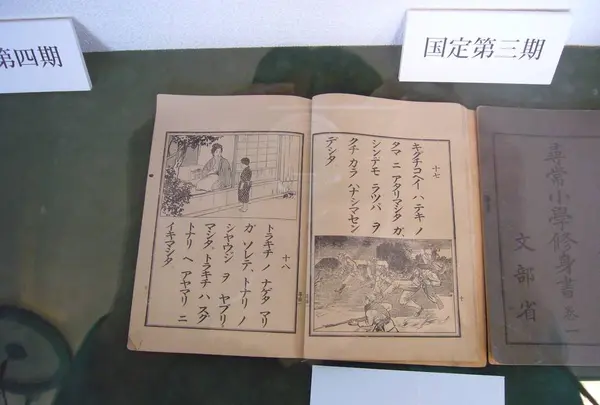 国定第三期
第四期
十七
キグチコヘイ ハ テキ ノ
タマ ニ アタリマシタ ガ、
シンデモ ラツパ ヲ
クチ カラ ハナシマセン
デシタ
十八
トラキチ ノ ナゲタ マリ
ガ ソレテ、トナリ ノ
シヤウジ ヲ ヤブリ
マシタ。トラキチ ハ スグ
トナリ ヘ アヤマリ ニ
イキマシタ。
尋常小學修身書 卷一
文部省